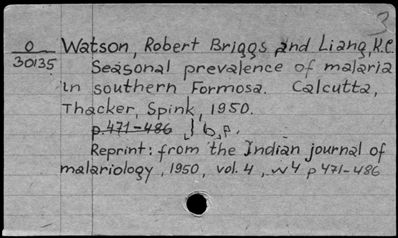 3
O Watson, Robert Briggs and Liang, K.C
30135 Seasonal prevalence of malaria
in southern Formosa. Calcutta,
Thacker, Spink, 1950.
p 471-486 ] 6, p.
Reprint: from the Indian journal of
malariology, 1950, vol. 4, n4 p 471-486